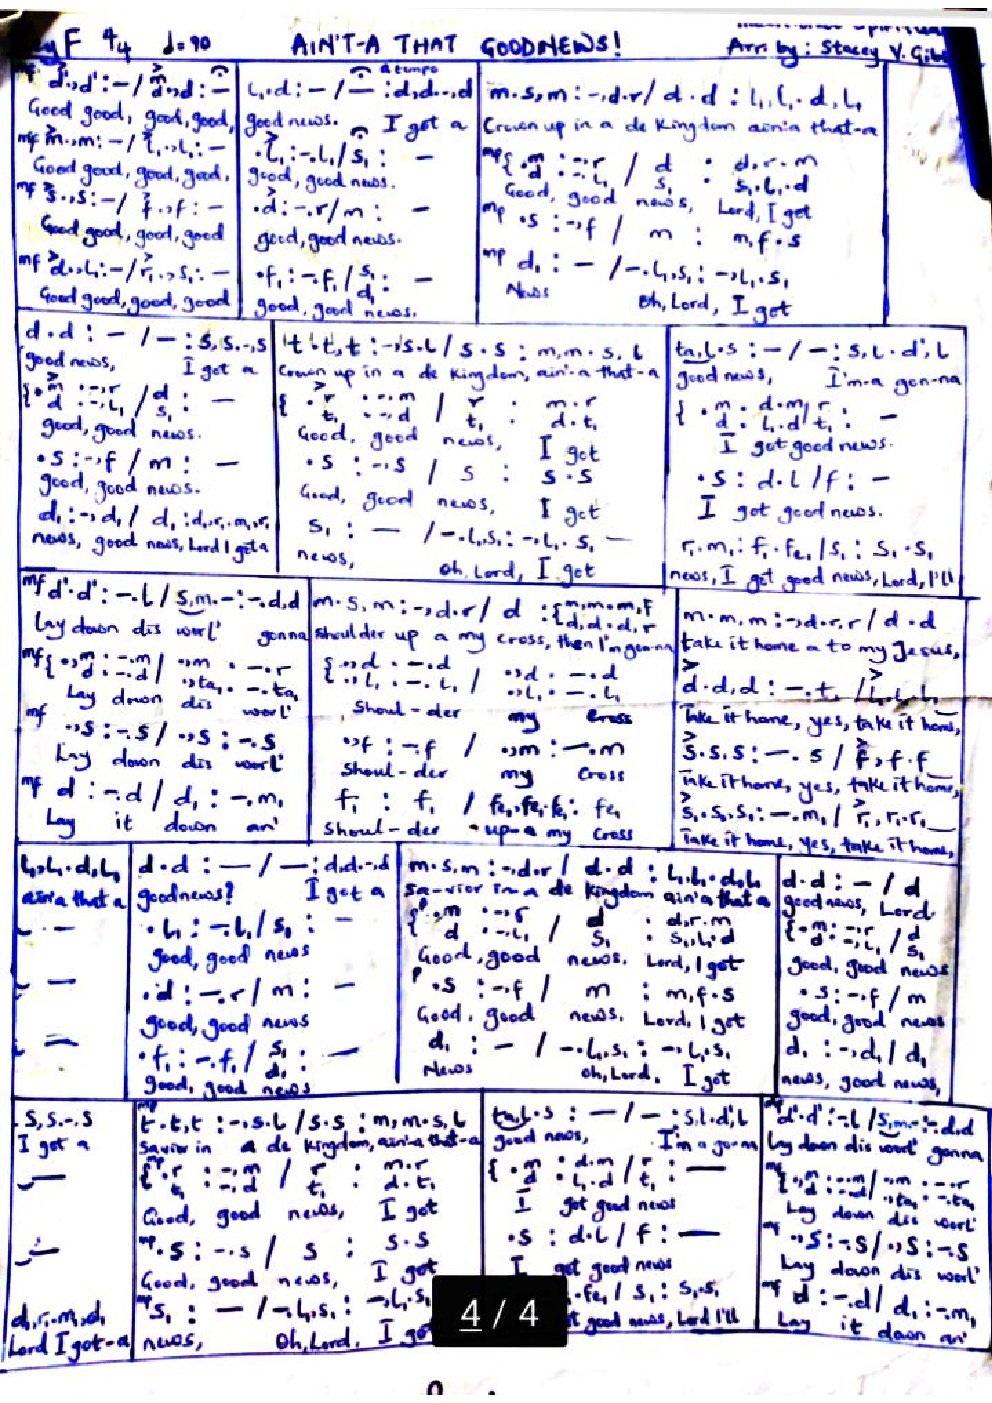 Key F 4/4 d=90 AIN'T-A THAT GOODNEWS!
Arr. by: Stacey V. Gibbs
d'.,d':-/d'.,d:- L,.d:-/-:d,d.-,d m.s,m:-,d.r/d.d:L,L.d,L,
Good good, good, good, good news. I got a Crown up in a de Kingdom ain'a that-a
mf m.,m:-/L,.,L,:- .L,:-.L,/s,: - mp{.m/d:-.r/L,/d/s,:d.r.m/s,.L,.d
Good good, good, good, good, good news. Good, good news, Lord, I got
mf s.,s:-/f.,f:- .d:-.r/m: - mp .s:-,f/m:m,f.s
Good good, good, good good, good news. 
mf d.,L,:-/r,.,s,:- .f,:-.f,/s,/d,: - mp d,:-/-.L,s,:-,L,.s,
Good good, good, good good, good news. News oh, Lord, I got
d.d:-/-:s,s.-,s t.t,t:-,s.L/s.s:m,m.s,L ta,L.s:-/-:s,L.d',L
good news, I got a Crown up in a de kingdom, ain'a that-a good news, I'm-a gon-na
{.m/d:-.r/L,/d/s,: - {.r/t,:-.m/d/r/t,:m.r/d.t, {.m/d.d.m/L,.d/r/t,: -
good, good news. Good, good news, I got I got good news.
.s:-,f/m: - .s:-.s/s:s.s .s:d.L/f: -
good, good news. Good, good news, I got I got good news.
d,:-,d,/d,:d,,r,.m,,r, s,:-/-.L,s,:-,L,.s, - r,.m,:f,.fe,/s,:s,.s,
news, good news, Lord I got a news, oh, Lord, I got news, I got good news, Lord, I'll
mf d'.d':-.L/s,m.-:-.d,d m.s,m:-,d.r/d:{m,m.m,f/d,d.d,r m.m,m:-,d.r,r/d.d
lay down dis worl' gonna shoulder up a my cross, then I'm gonna take it home a to my Jesus,
mf{.,m/d:-.m/d/.,m/ta,:-.r/ta, {.,d/L,:-.d/L,/.,d/L,:-.d/L, d.d,d:-.t,/L,.L,L,
Lay down dis worl' Shoul-der my cross Take it home, yes, take it home,
mf .,s:-.s/.,s:-.s .,f:-.f/.,m:-.m s.s.s:-.s/f,f.f
Lay down dis worl' Shoul-der my cross Take it home, yes, take it home,
mf d:-.d/d,:-.m, f,:f,/fe,,fe,.fe,:fe, s,.s,.s,:-.m,/r,,r,.r,
Lay it down an' Shoul-der up-a my cross Take it home, yes, take it home,
L,,L,.d,L, d.d:-/-:d,d.-,d m.s,m:-,d.r/d.d:L,L,.d,L, d.d:-/d
ain'a that a goodnews? I got a Sa-vior in a de Kingdom ain'a that a good news, Lord
.L,:-.L,/s,: - {.m/d:-.r/L,/d/s,:d,r.m/s,,L,.d {.m/d:-.r/L,/d/s,
good, good news Good, good news, Lord, I got good, good news
.d:-.r/m: - p .s:-.f/m:m,f.s .s:-.f/m
good, good news Good, good news, Lord, I got good, good news
.f,:-.f,/s,/d,: - d,:-/-.L,s,:-,L,.s, d,:-,d,/d,
good, good news News oh, Lord, I got news, good news,
.s,s.-.s mp t.t,t:-.s.L/s.s:m,m.s,L ta,L.s:-/-:s,L.d',L mf d'.d':-.L/s,m.-:-.d,d
I got a Savior in a de kingdom, ain'a that-a good news, I'm a gonna lay down dis worl' gonna
mp{.r/t,:-.m/d/r/t,:m.r/d.t, {.m/d:d.m/L,.d/r/t,: - mf{.,m/d:-.m/d/.,m/ta,:-.r/ta,
Good, good news, I got I got good news Lay down dis worl'
mp .s:-.s/s:s.s .s:d.L/f: - mf .,s:-.s/.,s:-.s
Good, good news, I got I got good news Lay down dis worl'
d,r,.m,d, mp s,:-/-.L,s,:-,L,.s, .fe,/s,:s,.s, mf d:-.d/d,:-.m,
Lord I got-a news, Oh, Lord, I good news, Lord I'll Lay it down an'
4 / 4